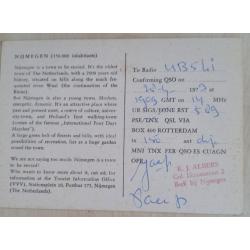 NIJMEGEN (150.000 inhabitants)
Nijmegen is a town to be envied. It's the oldest
town of The Netherlands, with a 2000 years old
history, situated on hills along the much fre-
quented river Waal (the continuation of the
Rhine).
But Nijmegen is also a young town. Modern,
energetic, dynamic. It's an attractive place where
past and present meet, a centre of industry, a
university-town, and Holland's first walking-town
(centre of the famous „International Four Days
Marches").
A large green belt of forests and hills, with ideal
possibilities of recreation, lies as a huge garden
around the town.
We are not saying too much. Nijmegen is a town
to be envied!
Who wants to know more about it, can ask for
information at the Tourist Information Office
(VVV), Stationsplein 10, Postbus 175, Nijmegen
(The Netherlands).
To Radio UB5LI
Confirming QSO on
1977
GMT on 14 MHz
UR SIGS/FONE RST 589
PSE/TNX QSL VIA
BOX 400 ROTTERDAM
tx 150 ant dip
MNI TNX FER QSO ES CUAGN
OP:
Jaap
R. J. ALBERS
Beek bij Nijmegen